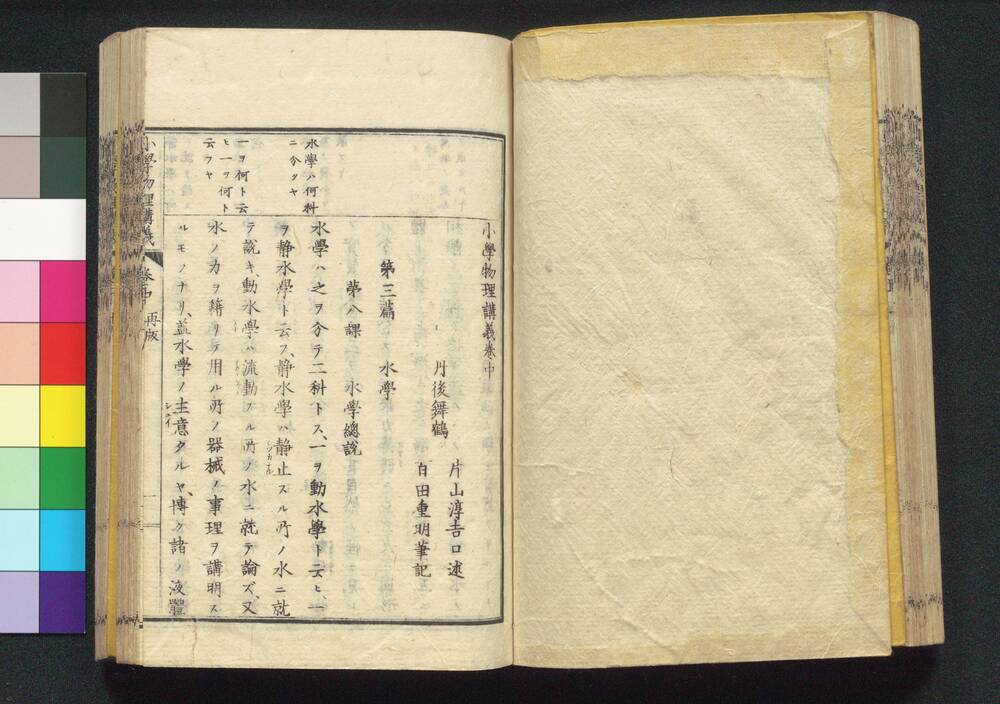 小學物理講義卷中
丹後舞鶴
片山淳吉口述
百田重明筆記
第三篇 水學
第八課 水學總說
水學ハ何科
ニ分ツヤ
一ヲ何ト云
ヒ一ヲ何ト
云フヤ
水學ハ之ヲ分テ二科トス、一ヲ動水學ト云ヒ、一
ヲ静水學ト云フ、静水學ハ静止スル所ノ水ニ就
テ說キ、動水學ハ流動スル所ノ水ニ就テ論ズ、又
水ノ力ヲ籍リテ用ル所ノ器械ノ事理ヲ講明ス
ルモノナリ、蓋水學ノ主意タルヤ、博ク諸ノ液體
小學物理講義 卷中 再版